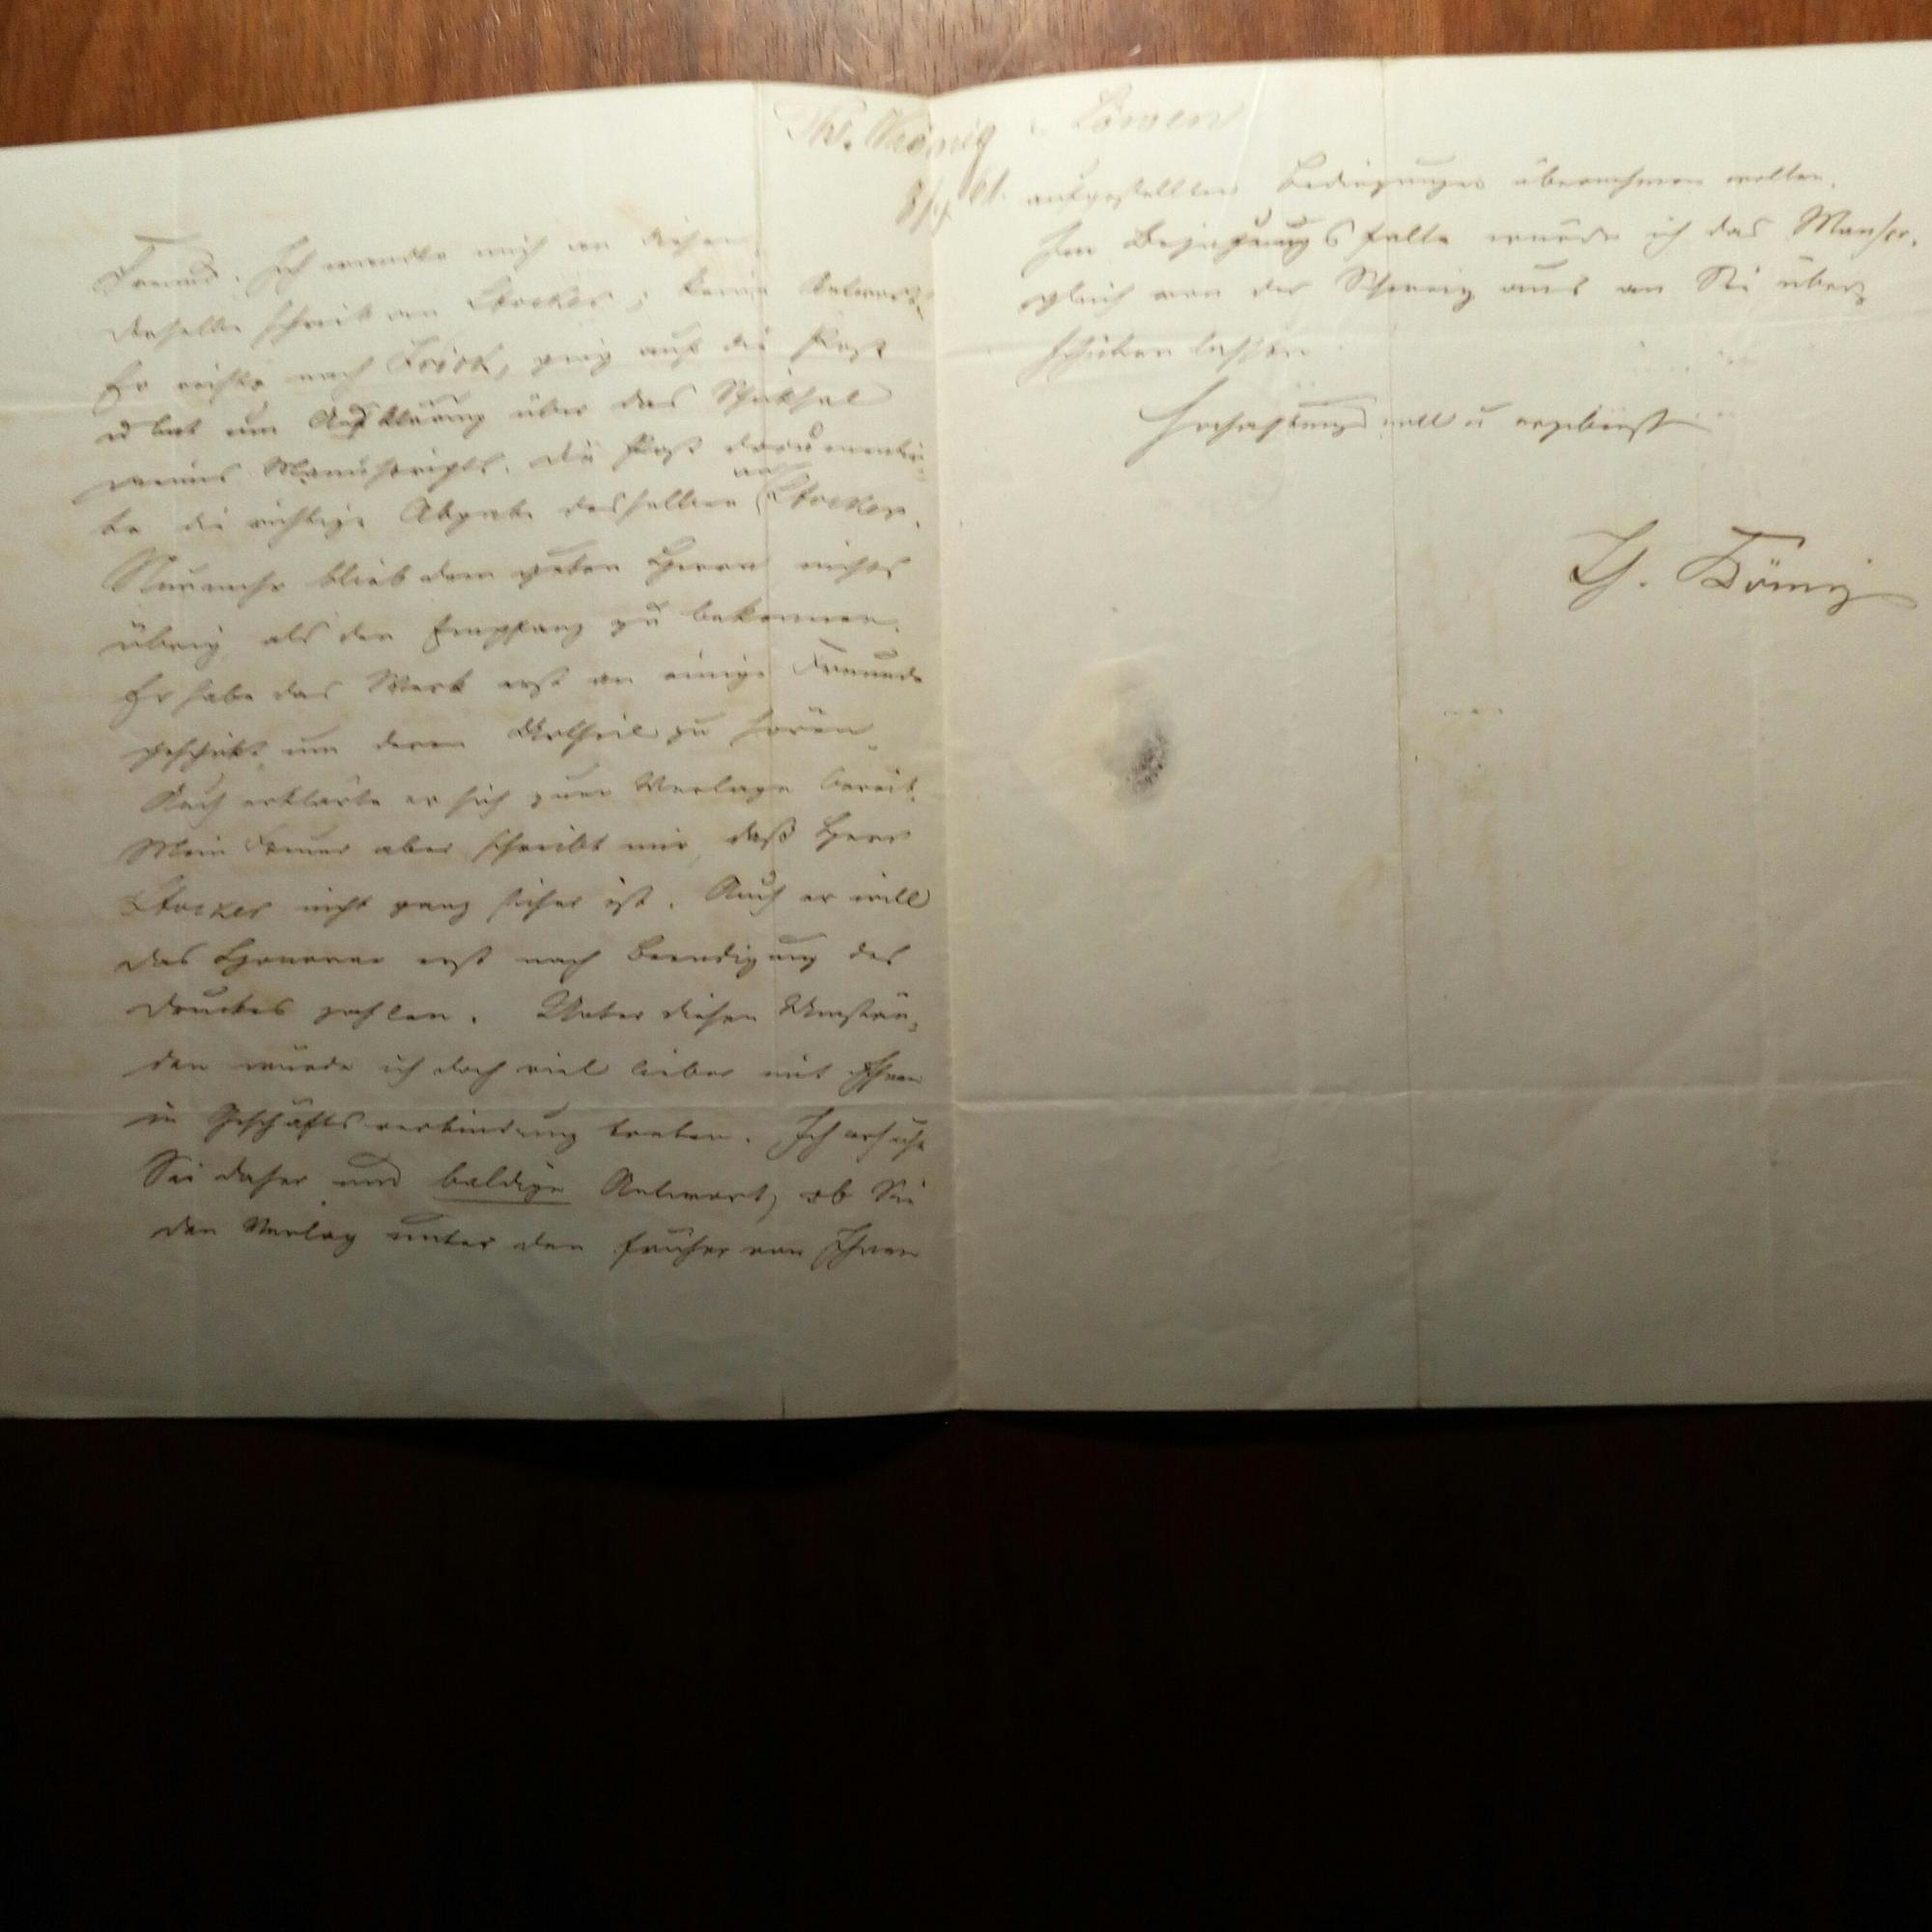 Th. König Löwen
8/9 61.
Freund. Ich wandte mich an diesen,
derselbe schrieb an Stocker; keine Antwort.
Er reiste nach Frick, ging auf die Post
u bat um Aufklärung über das Schiksal
meines Manuscripts. Die Post documentir-
te die richtige Abgabe desselben an Stocker.
Nunmehr blieb dem guten Herrn nichts
übrig als den Empfang zu bekennen.
Er habe das Werk erst an einige Freunde
geschikt um deren Urtheil zu hören.
Auch erklärte er sich zum Verlage bereit.
Mein Freund aber schreibt mir, daß Herr
Stocker nicht ganz sicher ist. Auch er will
das Honorar erst nach Beendigung des
Druckes zahlen. Unter diesen Umstän-
den würde ich doch viel lieber mit Ihnen
in Geschäftsverbindung treten. Ich ersuche
Sie daher um baldige Antwort, ob Sie
den Verlag unter den früher von Ihnen
aufgestellten Bedingungen übernehmen wollen.
Im Bejahungsfalle würde ich das Manscr.
gleich von der Schweiz aus an Sie über-
schicken lassen.
Hochachtungsvoll u ergebenst
Th. König